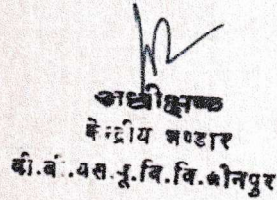 अधीक्षक
केन्द्रीय भण्डार
वी.ब.यस.पू.वि.वि.जौनपुर